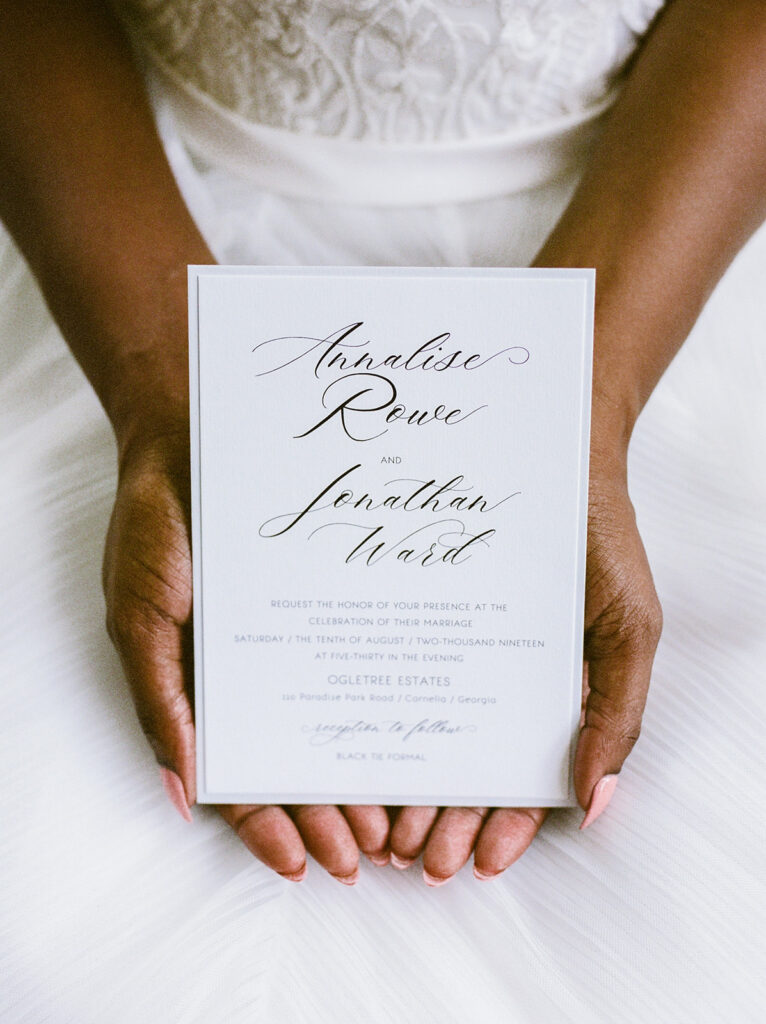 Annalise
Rowe
AND
Jonathan
Ward
REQUEST THE HONOR OF YOUR PRESENCE AT THE
CELEBRATION OF THEIR MARRIAGE
SATURDAY / THE TENTH OF AUGUST / TWO-THOUSAND NINETEEN
AT FIVE-THIRTY IN THE EVENING
OGLETREE ESTATES
Paradise Park Road / Cornelia / Georgia
reception to follow
BLACK TIE FORMAL